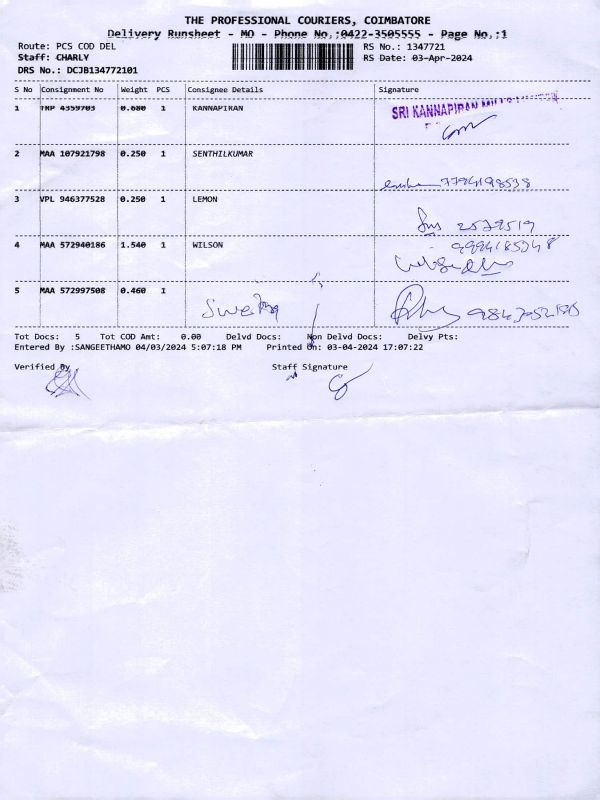 THE PROFESSIONAL COURIERS, COIMBATORE
Delivery Runsheet - MO - Phone No.:0422-3505555 - Page No.:1
Route: PCS COD DEL
RS No.: 1347721
Staff: CHARLY
RS Date: 03-Apr-2024
DRS No.: DCJB134772101
S No Consignment No Weight PCS Consignee Details Signature
1 TRP 4359703 0.680 1 KANNAPIRAN
SRI KANNAPIRAN MILLS
2 MAA 107921798 0.250 1 SENTHILKUMAR
7794198538
3 VPL 946377528 0.250 1 LEMON
2529519
4 MAA 572940186 1.540 1 WILSON
9994185348
5 MAA 572997508 0.460 1
Tot Docs: 5 Tot COD Amt: 0.00 Delvd Docs: Non Delvd Docs: Delvy Pts:
Entered By :SANGEETHAMO 04/03/2024 5:07:18 PM Printed On: 03-04-2024 17:07:22
Verified By
Staff Signature